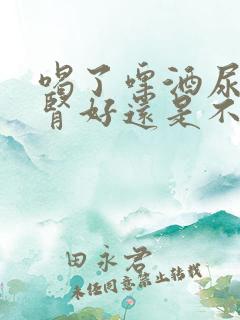 喝了啤酒尿
肾好还是不
田永君
未经同意禁止转载